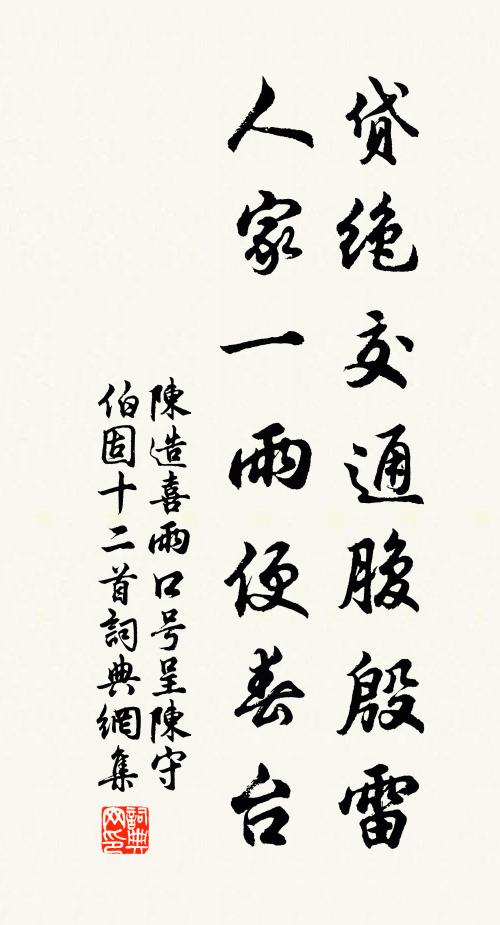 貸絶交通腹殷雷
人家一雨便春台
陳造喜雨口号呈陳守
伯固十二首詞典網集
詞典
网印